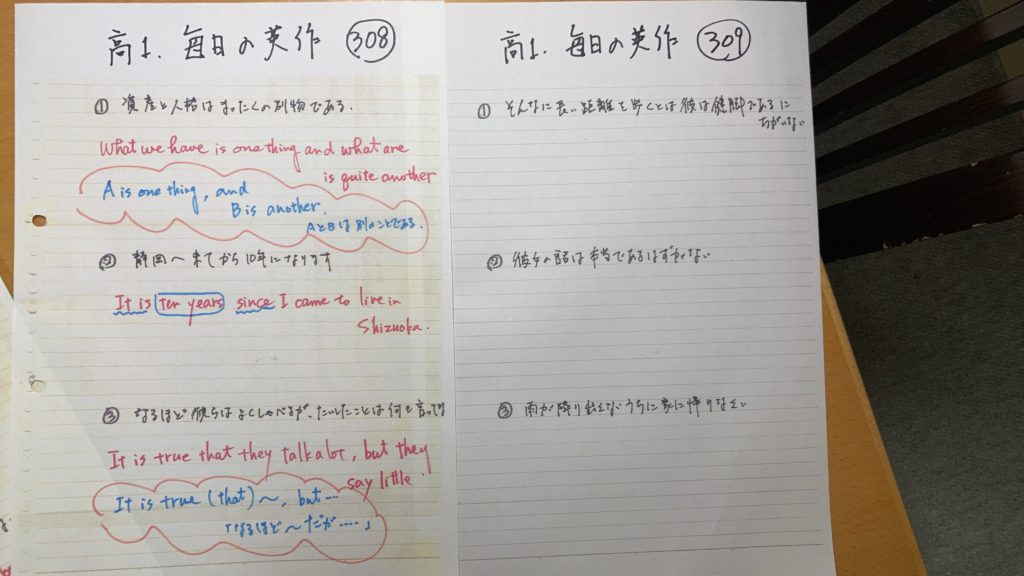 高1. 毎日の英作 308
① 資産と人格はまったくの別物である.
What we have is one thing and what are
is quite another
A is one thing, and
B is another.
AとBは別のことである.
② 静岡へ来てから10年になります
It is ten years since I came to live in
Shizuoka.
③ なるほど彼らはよくしゃべるが、たいしたことは何も言って
It is true that they talk a lot, but they
say little
It is true (that) ～, but ....
「なるほど～だが.....」
高1. 毎日の英作 309
① そんなに長い距離を歩くとは彼は健脚であるに
ちがいない
② 彼女の話は本当であるはずがない
③ 雨が降り出さないうちに家に帰りなさい